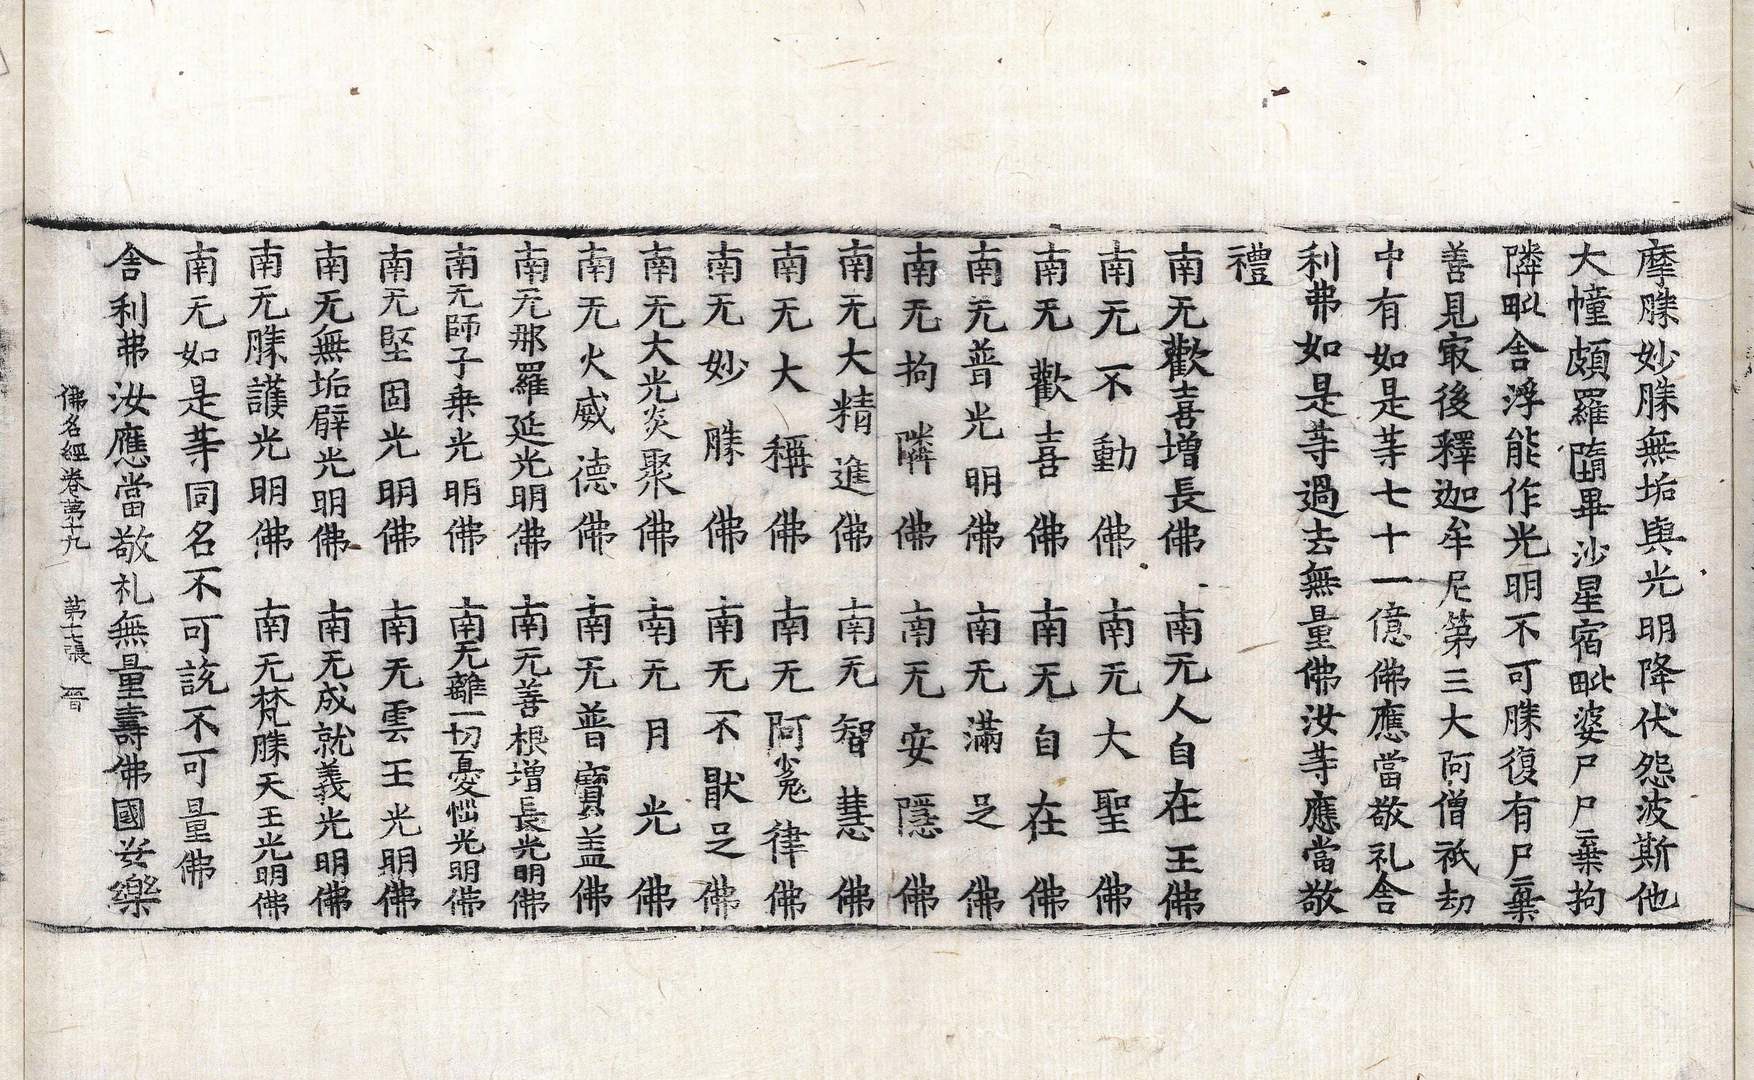 摩勝妙勝無垢與光明降伏怨波斯他
大幢頗羅隨畢沙星宿毗婆尸尸棄拘
隣毗舍浮能作光明不可勝復有尸棄
善見㝡後釋迦牟尼第三大阿僧祇劫
中有如是䓁七十一億佛應當敬礼舍
利弗如是䓁過去無量佛汝䓁應當敬
禮
南无歡喜增長佛 南无人自在王佛
南无不動佛 南无大聖佛
南无歡喜佛 南无自在佛
南无普光明佛 南无滿足佛
南无拘隣佛 南无安隱佛
南无大精進佛 南无智慧佛
南无大稱佛 南无阿㝹律佛
南无妙勝佛 南无不猒足佛
南无大光炎聚佛 南无月光佛
南无火威德佛 南无普寶盖佛
南无那羅延光明佛 南无善根增長光明佛
南无師子乘光明佛 南无離一切憂惱光明佛
南无堅固光明佛 南无雲王光明佛
南无無垢臂光明佛 南无成就義光明佛
南无勝護光明佛 南无梵勝天王光明佛
南无如是䓁同名不可說不可量佛
舍利弗汝應當敬礼無量壽佛國安樂
佛名經卷苐十九 苐七張 晉